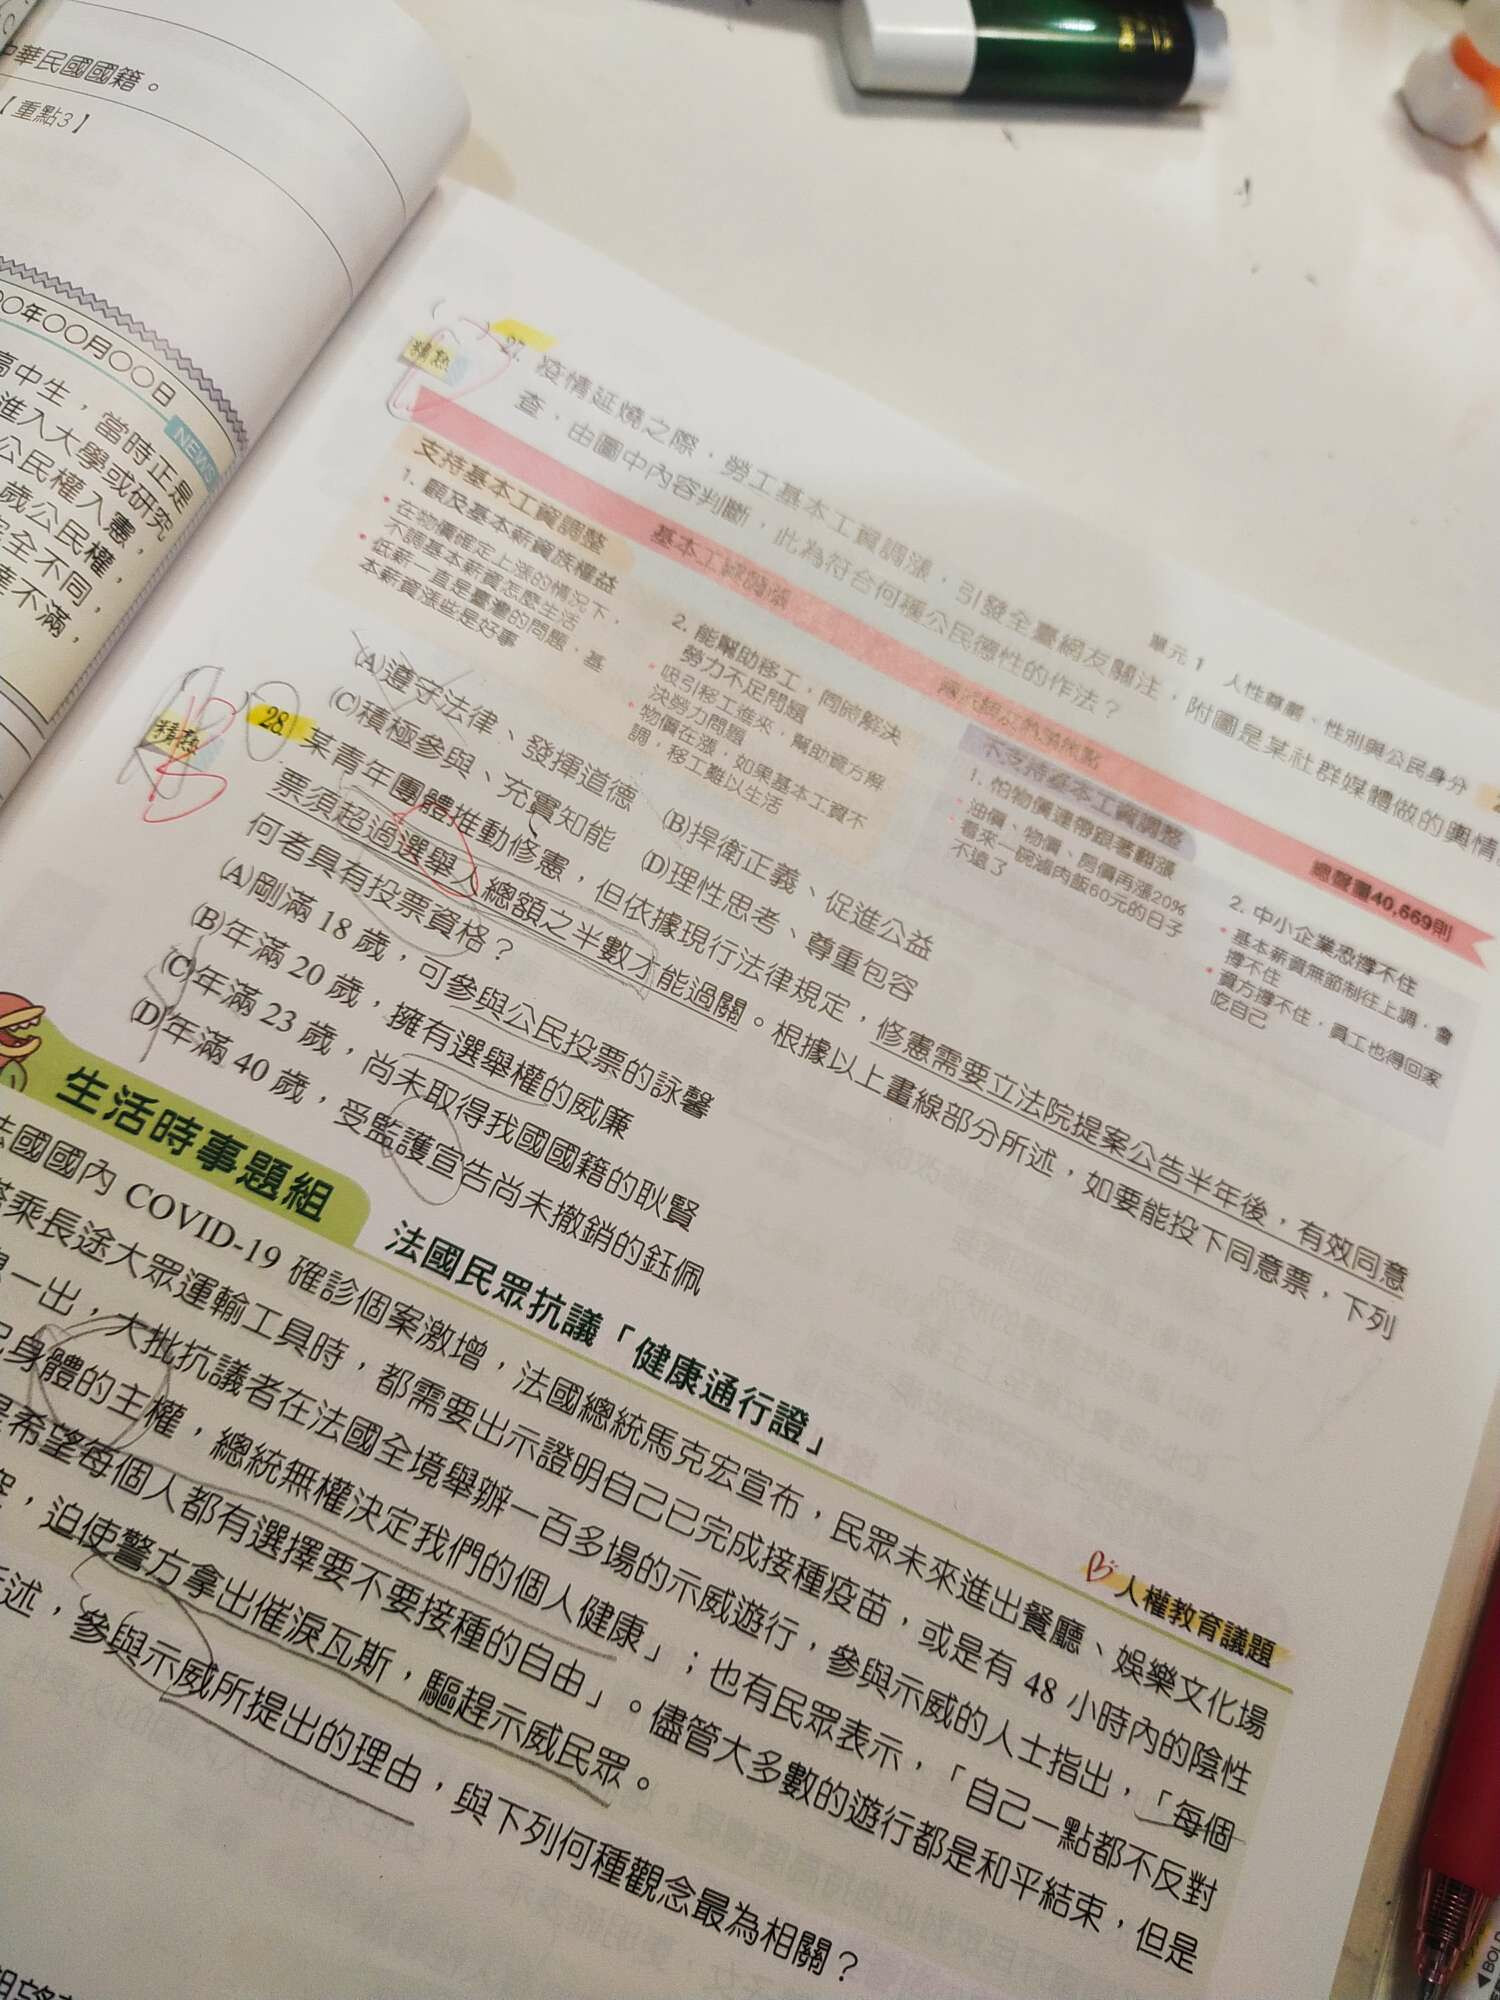 中華民國國籍。
【重點3】
〇年〇〇月〇〇日
NEWS
高中生，當時正是
進入大學或研究
公民權入憲，
歲公民權，
完全不同，
產不滿，
單元1 人性尊嚴、性別與公民身分
精熟
27. 疫情延燒之際，勞工基本工資調漲，引發全臺網友關注，附圖是某社群媒體做的輿情
查，由圖中內容判斷，此為符合何種公民德性的作法？
總聲量40,669則
支持基本工資調整
1. 顧及基本薪資族權益
在物價確定上漲的情況下，
不調基本薪資怎麼生活
低薪一直是臺灣的問題，基
本薪資漲些是好事
2. 能幫助移工，同時解決
勞力不足問題
吸引移工進來，幫助資方解
決勞力問題
物價在漲，如果基本工資不
調，移工難以生活
不支持基本工資調整
1. 怕物價連帶跟著翻漲
油價、物價、房價再漲20%
看來一碗滷肉飯60元的日子
不遠了
2. 中小企業恐撐不住
基本薪資無節制往上調，會
撐不住
資方撐不住，員工也得回家
吃自己
(A)遵守法律、發揮道德 (B)捍衛正義、促進公益
(C)積極參與、充實知能 (D)理性思考、尊重包容
精熟
28. 某青年團體推動修憲，但依據現行法律規定，修憲需要立法院提案公告半年後，有效同意
票須超過選舉人總額之半數才能過關。根據以上畫線部分所述，如要能投下同意票，下列
何者具有投票資格？
(A)剛滿 18 歲，可參與公民投票的詠馨
(B)年滿 20 歲，擁有選舉權的威廉
(C)年滿 23 歲，尚未取得我國國籍的耿賢
(D)年滿 40 歲，受監護宣告尚未撤銷的鈺佩
生活時事題組 法國民眾抗議「健康通行證」
人權教育議題
法國國內 COVID-19 確診個案激增，法國總統馬克宏宣布，民眾未來進出餐廳、娛樂文化場
搭乘長途大眾運輸工具時，都需要出示證明自己已完成接種疫苗，或是有 48 小時內的陰性
一出，大批抗議者在法國全境舉辦一百多場的示威遊行，參與示威的人士指出，「每個
身體的主權，總統無權決定我們的個人健康」；也有民眾表示，「自己一點都不反對
是希望每個人都有選擇要不要接種的自由」。儘管大多數的遊行都是和平結束，但是
，迫使警方拿出催淚瓦斯，驅趕示威民眾。
述，參與示威所提出的理由，與下列何種觀念最為相關？